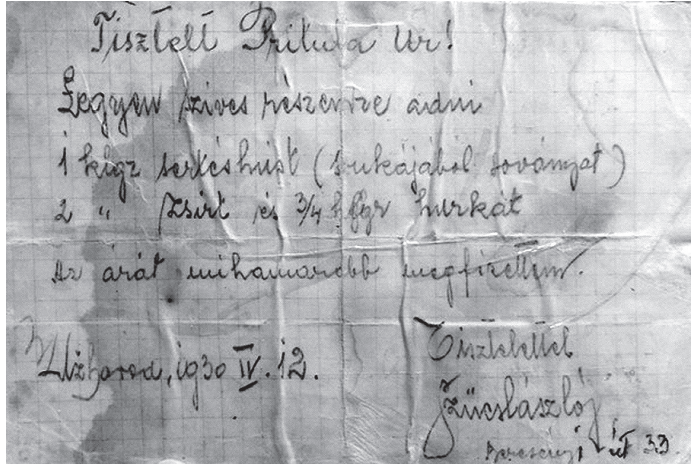 Tisztelt Pritula Ur!
Legyen szives részemre adni
1 klgr sertéshúst (sukájából soványat)
2 " zsirt és 3/4 klgr hurkát
Az árát mihamarebb megfizetem.
Užhorod, 1930 IV. 12.
Tisztelettel
Szücslászlój
út 33